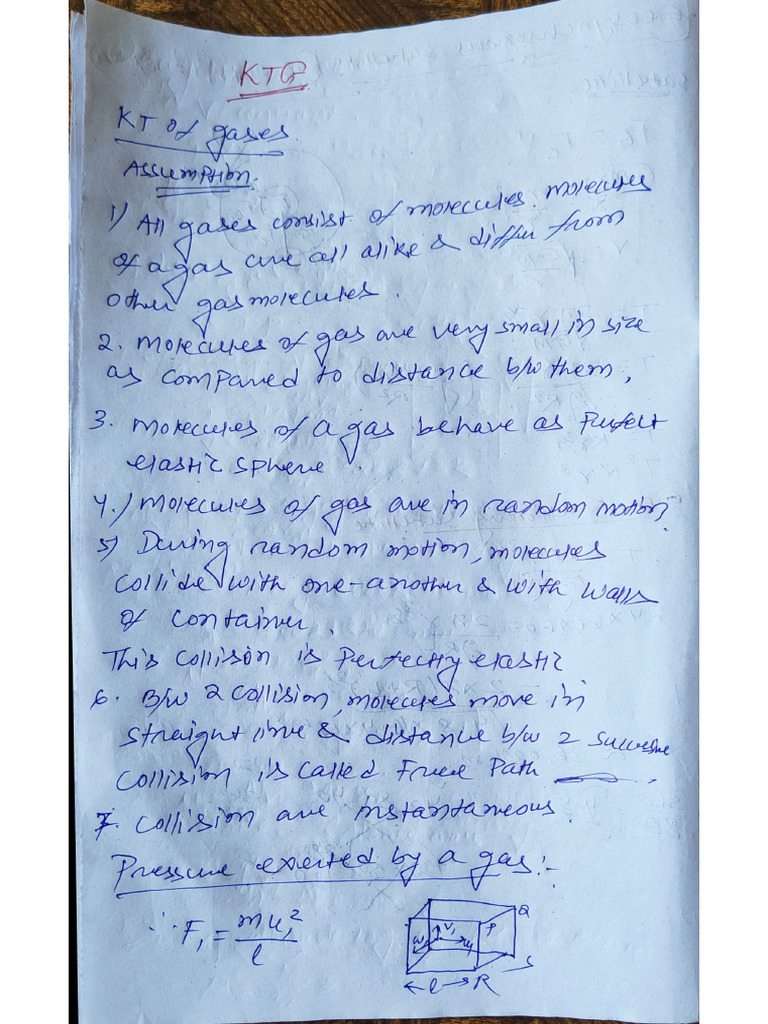 KTG
KT of gases.
Assumption.
1) All gases consist of molecules. molecules
of a gas are all alike & differ from
other gas molecules.
2. molecules of gas are very small in size
as compared to distance b/w them,
3. molecules of a gas behave as Perfect
elastic sphere.
4.) molecules of gas are in random motion.
5) During random motion, molecules
collide with one-another & with walls
of container.
This collision is Perfectly elastic
6. B/w 2 collision, molecules move in
straight line & distance b/w 2 successive
collision is called Free Path.
7. collision are instantaneous.
Pressure exerted by a gas:-
∵ F₁ = mu₁²/l
Q
P
w₁ v₁ u₁
S
←l→ R